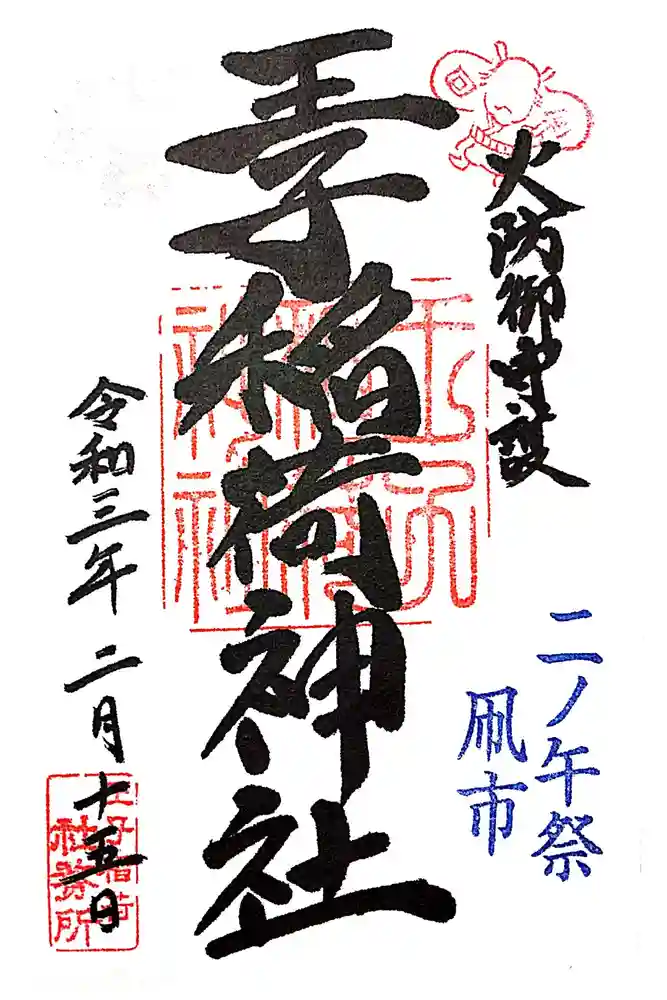 火防御守護
二ノ午祭
凧市
王子稲荷神社
令和三年二月十五日
王子稲荷
社務所